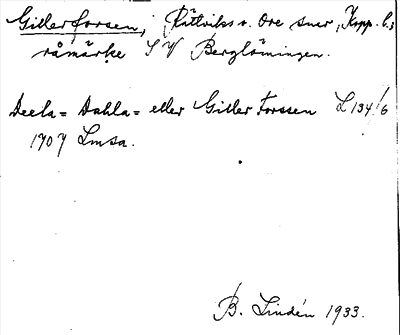 Gitlerforsen, Rättviks o. Ore snar, Kopp. l.;
råmärke S V Berglöminngen.
Deela = Dahla = eller Gitler Forssen L 134/6
1707 Lmsa.
B. Lindén 1933.